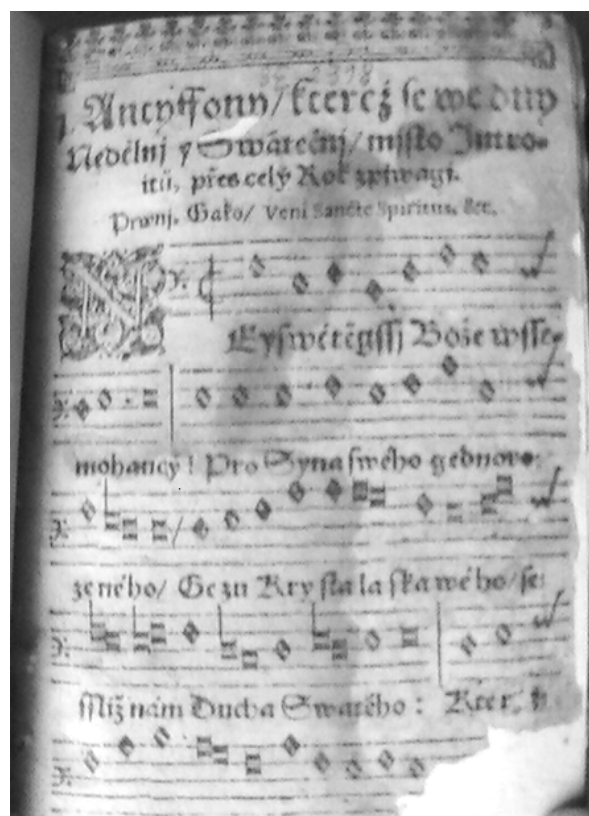 Antyffony/ kteréž se we dny
Nedělnj y Swátečnj/ mjsto Intro-
itů, přes celý Rok zpjwagj.
Prwnj. Gako/ Veni Sancte Spiritus, &c.
NEyswětěgssj Bože wsse-
mohaucý! Pro Syna swého gednoro-
zeného/ Gezu Krysta laskawého/ se-
ssliž nám Ducha Swatého: